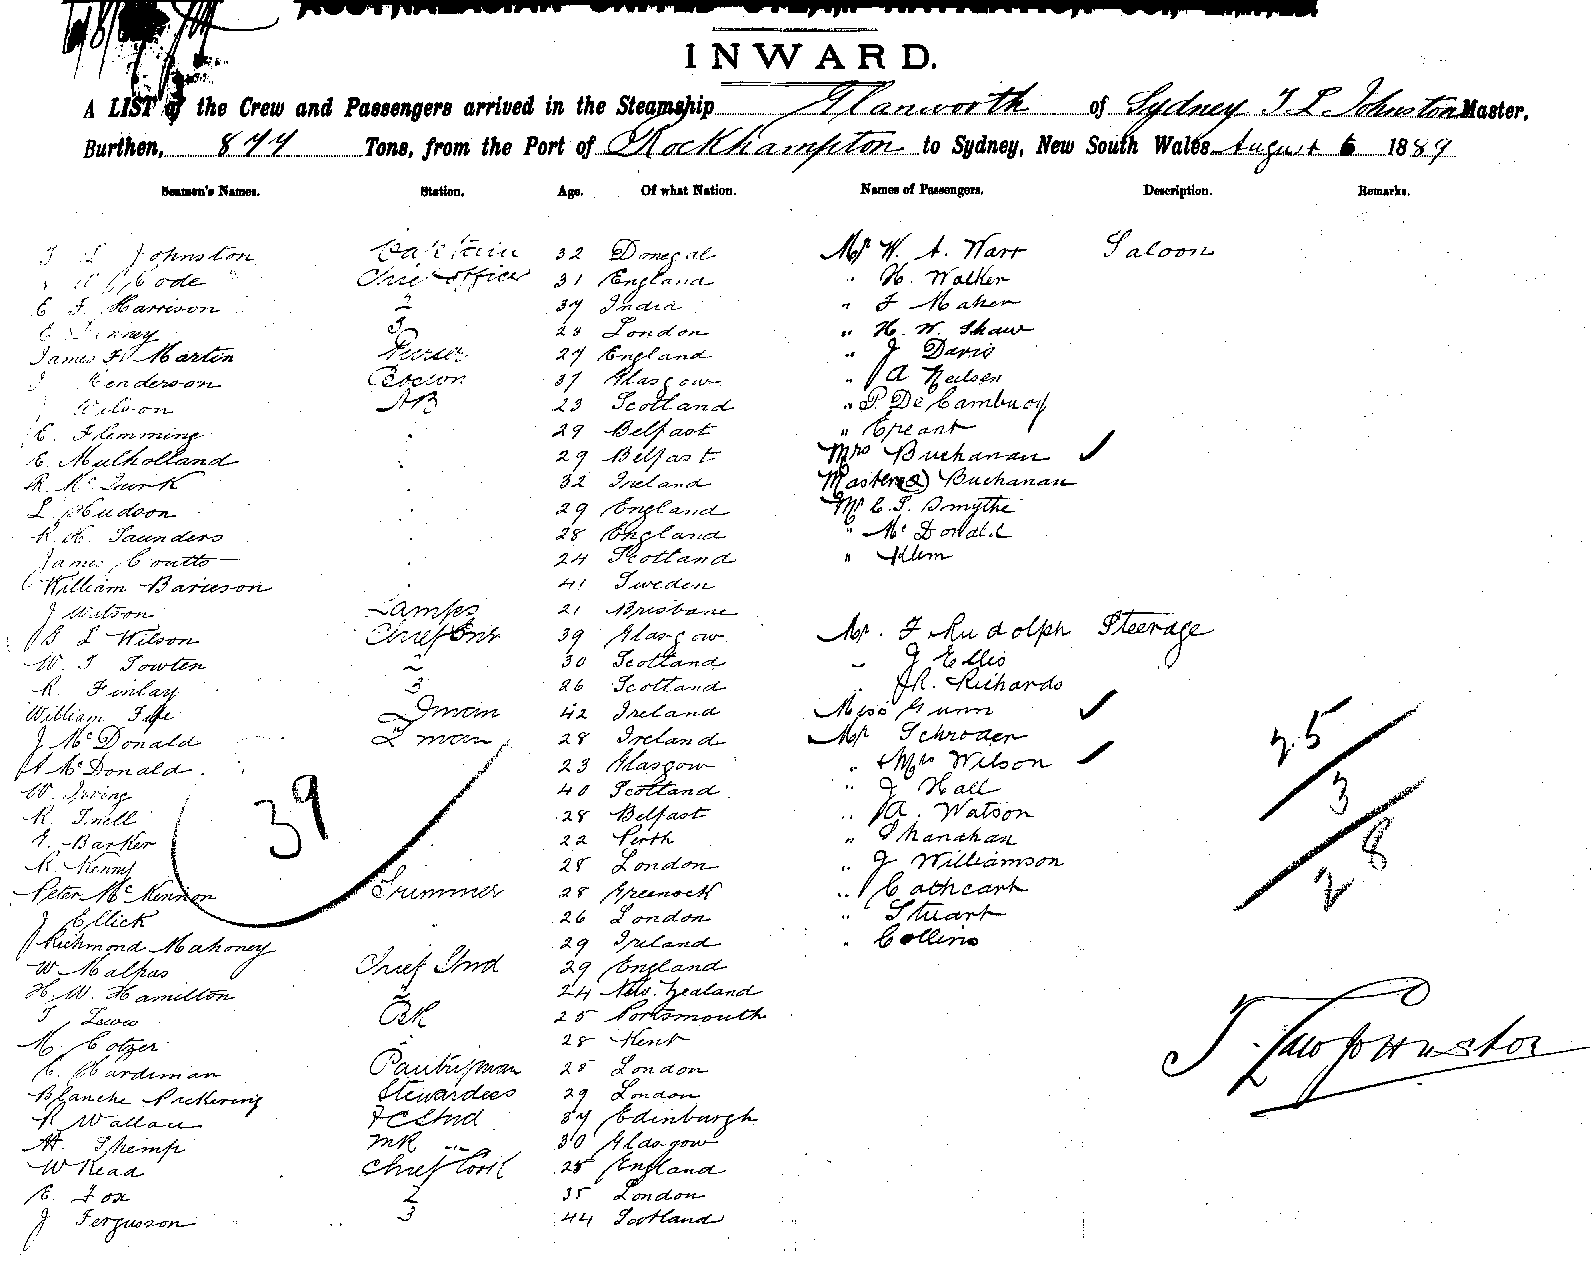 AUSTRALASIAN UNITED STEAM NAVIGATION COY. LIMITED
INWARD.
A LIST of the Crew and Passengers arrived in the Steamship Glanworth of Sydney T L Johnston Master,
Burthen, 877 Tons, from the Port of Rockhampton to Sydney, New South Wales August 6 1889
Seamen's Names. Station. Age. Of what Nation. Names of Passengers. Description. Remarks.
T L Johnston Captain 32 Donegal Mr W. A. Warr Saloon
Code Chief Officer 31 England " H. Walker
E F. Harrison 2 37 India " F Maher
E 3 28 London " H. W. Shaw
James H Martin Purser 27 England " J Davis
J Henderson Bosun 37 Glasgow " A Neilsen
J Wilson AB 23 Scotland " P. De
E. Flemming 29 Belfast "
E. Mulholland 29 Belfast Mrs Buchanan ✓
R. Mc Turk 32 Ireland Masters (2) Buchanan
L Hudson 29 England Mr E. T. Smythe
R. H. Saunders 28 England " Mc Donald
James Coutts 24 Scotland " Klem
William 41 Sweden
J Watson Lamps 21 Brisbane
B L Wilson Chief Enr 39 Glasgow Mr. F Rudolph Steerage
W. T Towten 2 30 Scotland " J Ellis
R. Finlay 3 26 Scotland " R. Richards
William Fman 42 Ireland Miss Gunn ✓
J McDonald Fman 28 Ireland Mr Schroder
A McDonald. 23 Glasgow " & Mrs Wilson ✓
W. Irving 40 Scotland " J Hall
R. Snell 28 Belfast " A. Watson
Barker 22 Perth " Shanahan
R Kenny 28 London " J Williamson
Peter McKennon Trimmer 28 Greenock " Cathcart
J Ellick 26 London " Stuart
Richmond Mahoney 29 Ireland " Collins
W Malpas Chief Stwd 29 England
H. W. Hamilton 2 24 New Zealand
T Lewis BK 25 Portsmouth
M. Cotzer 28 Kent
C. Hardiman Pantryman 28 London
Blanche Pickering Stewardess 29 London
R Wallace FC Stwd 37 Edinburgh
A. Shemp MR 30 Glasgow
W Read Chief Cook 28 England
E. Fox 2 35 London
J Fergusson 3 44 Scotland
39
25
3
28
T. Law Johnston